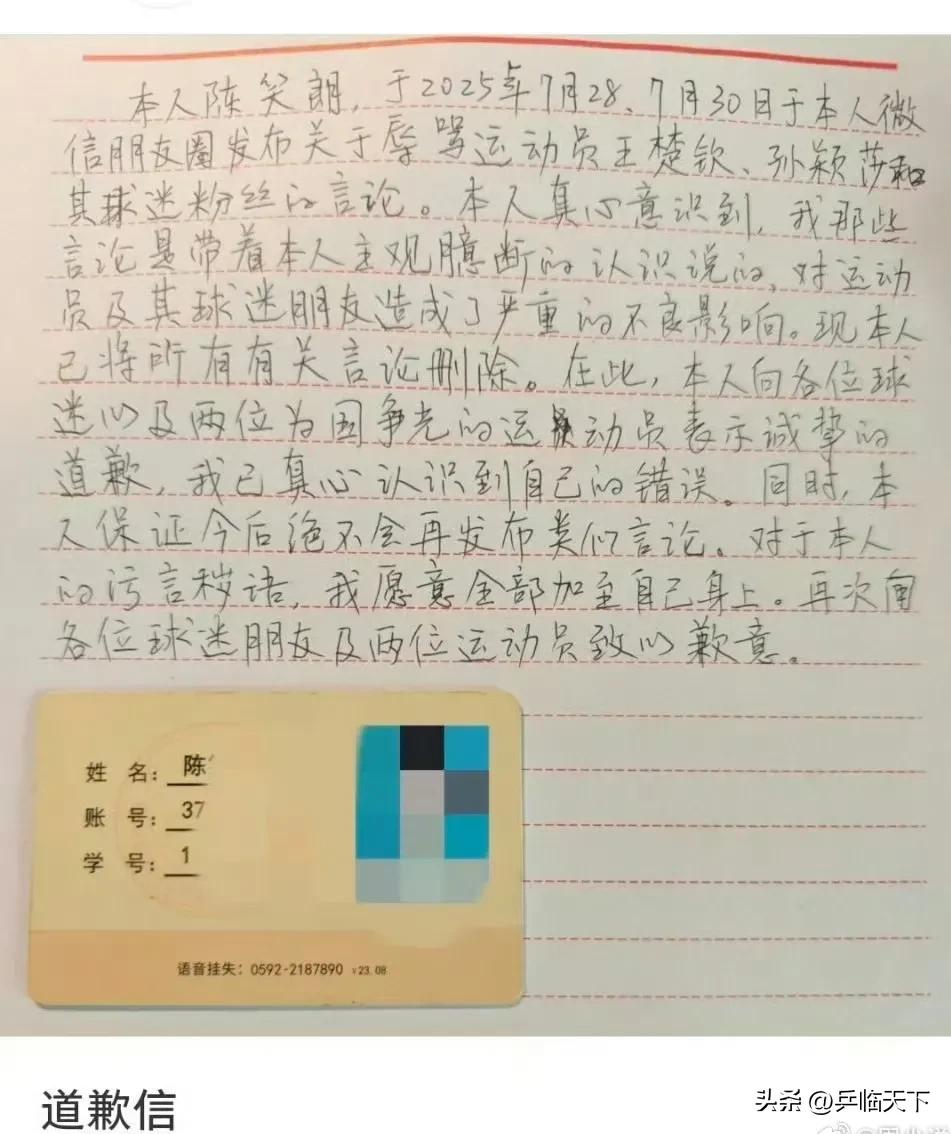 本人陈笑朗，于2025年7月28、7月30日于本人微
信朋友圈发布关于辱骂运动员王楚钦、孙颖莎和
其球迷粉丝的言论。本人真心意识到，我那些
言论是带着本人主观臆断的认识说的，对运动
员及其球迷朋友造成了严重的不良影响。现本人
已将所有有关言论删除。在此，本人向各位球
迷以及两位为国争光的运动员表示诚挚的
道歉，我已真心认识到自己的错误。同时，本
人保证今后绝不会再发布类似言论。对于本人
的污言秽语，我愿意全部加至自己身上。再次向
各位球迷朋友及两位运动员致以歉意。
姓 名：陈
账 号：37
学 号：1
语音挂失：0592-2187890 V23.08
道歉信
头条 @乒临天下